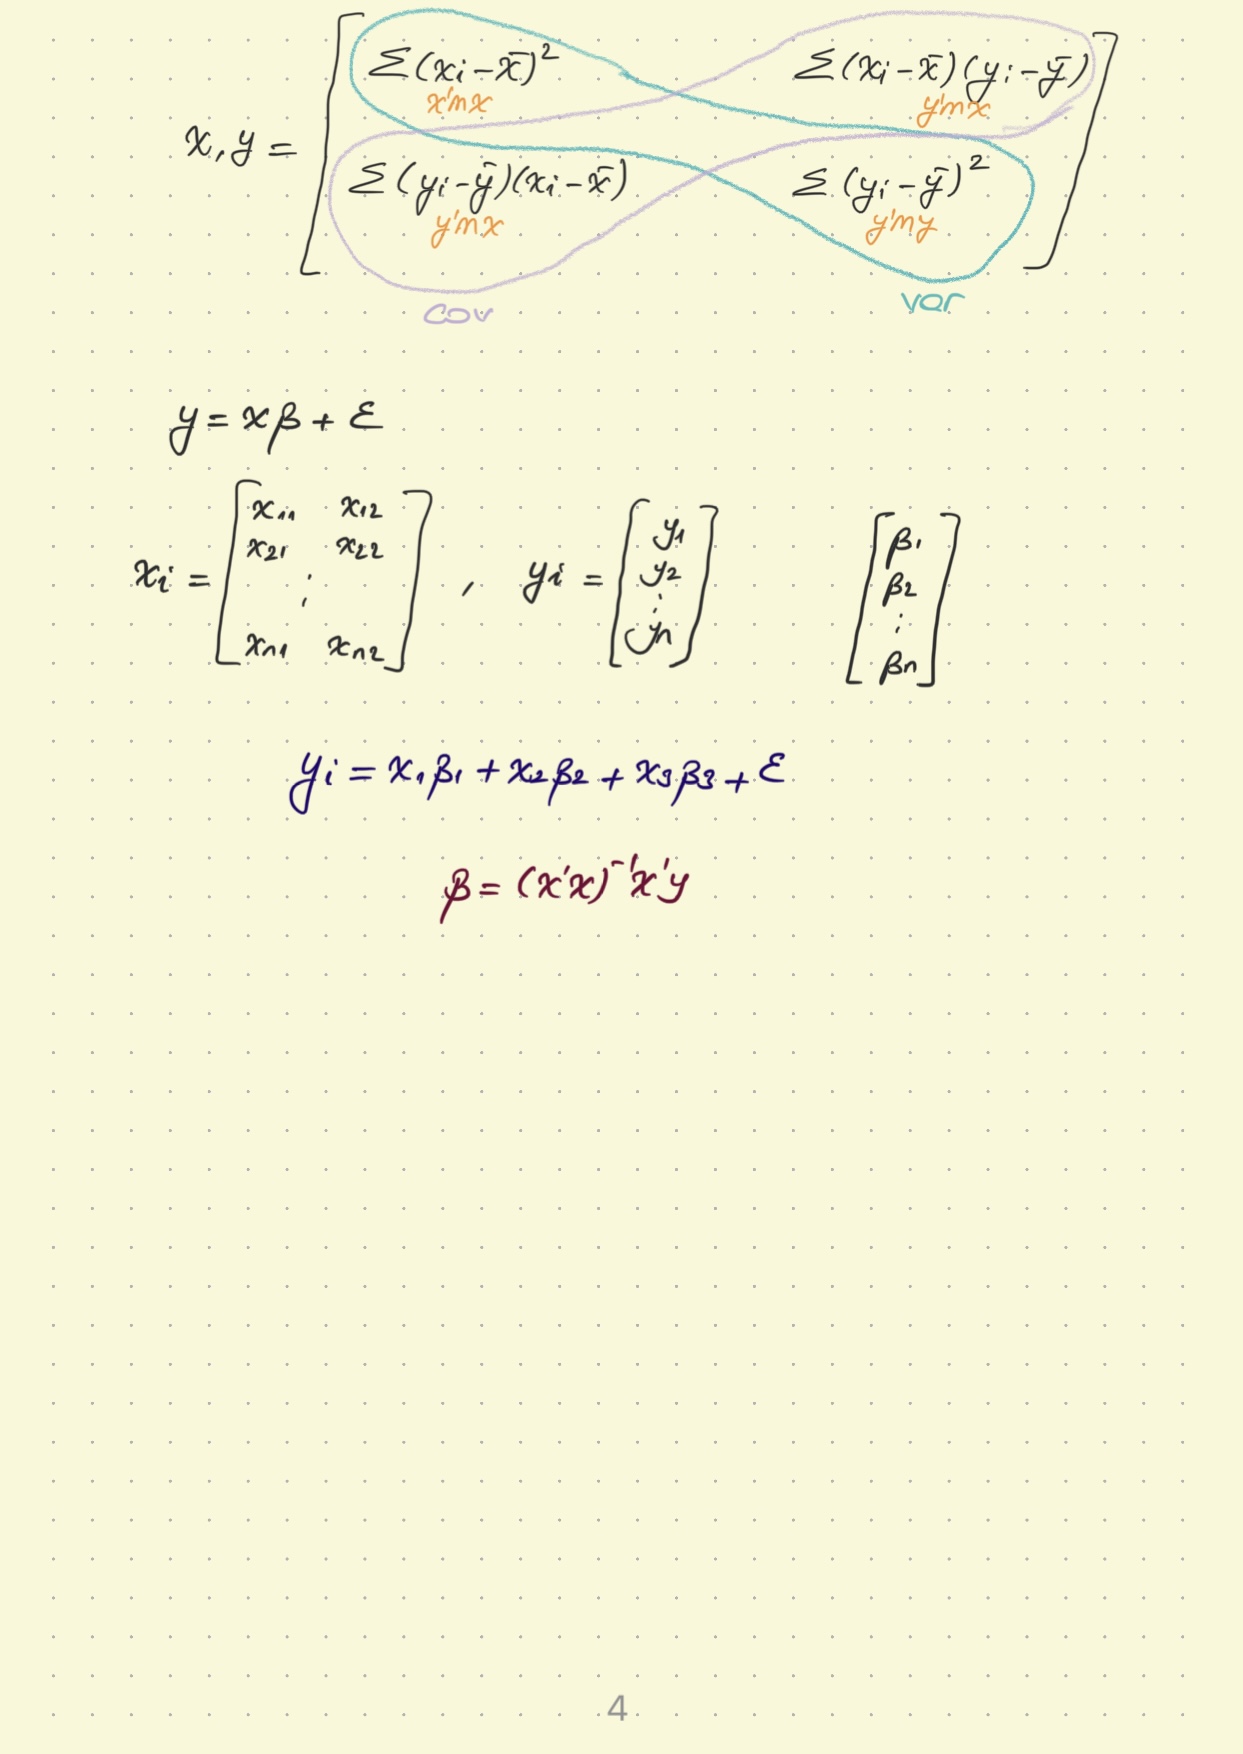 x, y = [ Σ(xi − x̄)²   Σ(xi − x̄)(yi − ȳ)
x'mx   y'mx
Σ(yi − ȳ)(xi − x̄)   Σ(yi − ȳ)² ]
y'mx   y'my
Cov   var
y = xβ + ε
xi = [ x11 x12
x21 x22
⋮
xn1 xn2 ] , yi = [ y1
y2
⋮
yn ]
[ β1
β2
⋮
βn ]
yi = x1β1 + x2β2 + x3β3 + ε
β = (x'x)⁻¹x'y
4